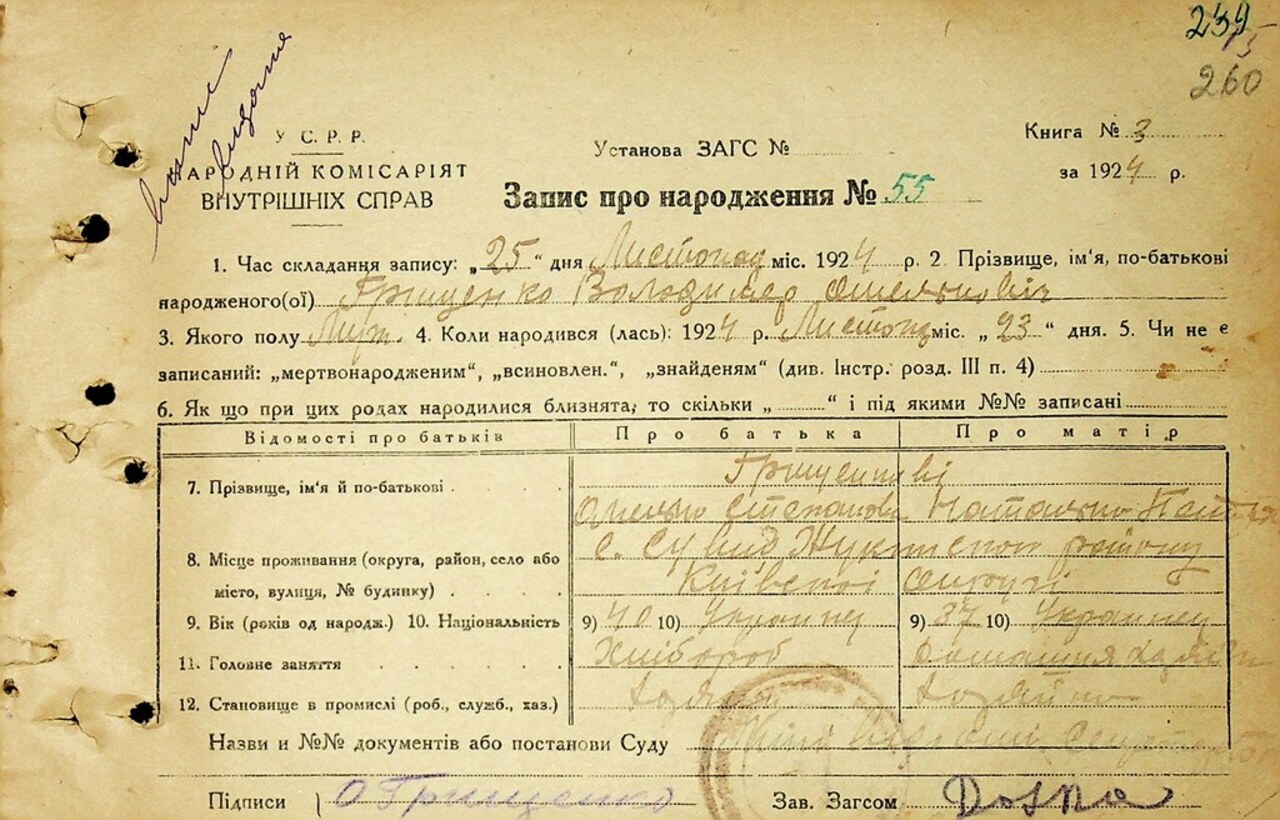 259
15
260
У. С. Р. Р.
НАРОДНІЙ КОМІСАРІЯТ
ВНУТРІШНІХ СПРАВ
видано
Установа ЗАГС №
Книга № 3
за 1924 р.
Запис про народження № 55
1. Час складання запису: „25“ дня Листопад міс. 1924 р. 2. Прізвище, ім'я, по-батькові
народженого(ої) Грищенко Володимер Омелькович
3. Якого полу Муж. 4. Коли народився (лась): 1924 р. Листопад міс. „23“ дня. 5. Чи не є
записаний: „мертвонародженим“, „всиновлен.“, „знайденям“ (див. Інстр. розд. III п. 4)
6. Як що при цих родах народилися близнята, то скільки „ “ і під якими №№ записані
Відомості про батьків Про батька Про матір
Грищенкові
7. Прізвище, ім'я й по-батькові Омелько Степанов Наталько
8. Місце проживання (округа, район, село або с. Сувид Жукинского району
місто, вулиця, № будинку) Київскоі Округи
9. Вік (років од народж.) 10. Національність 9) 40 10) Украинец 9) 37 10) Украинец
11. Головне заняття Хлібороб Домашня
12. Становище в промислі (роб., служб., хаз.)
Назви и №№ документів або постанови Суду
Підписи О Грищенко Зав. Загсом